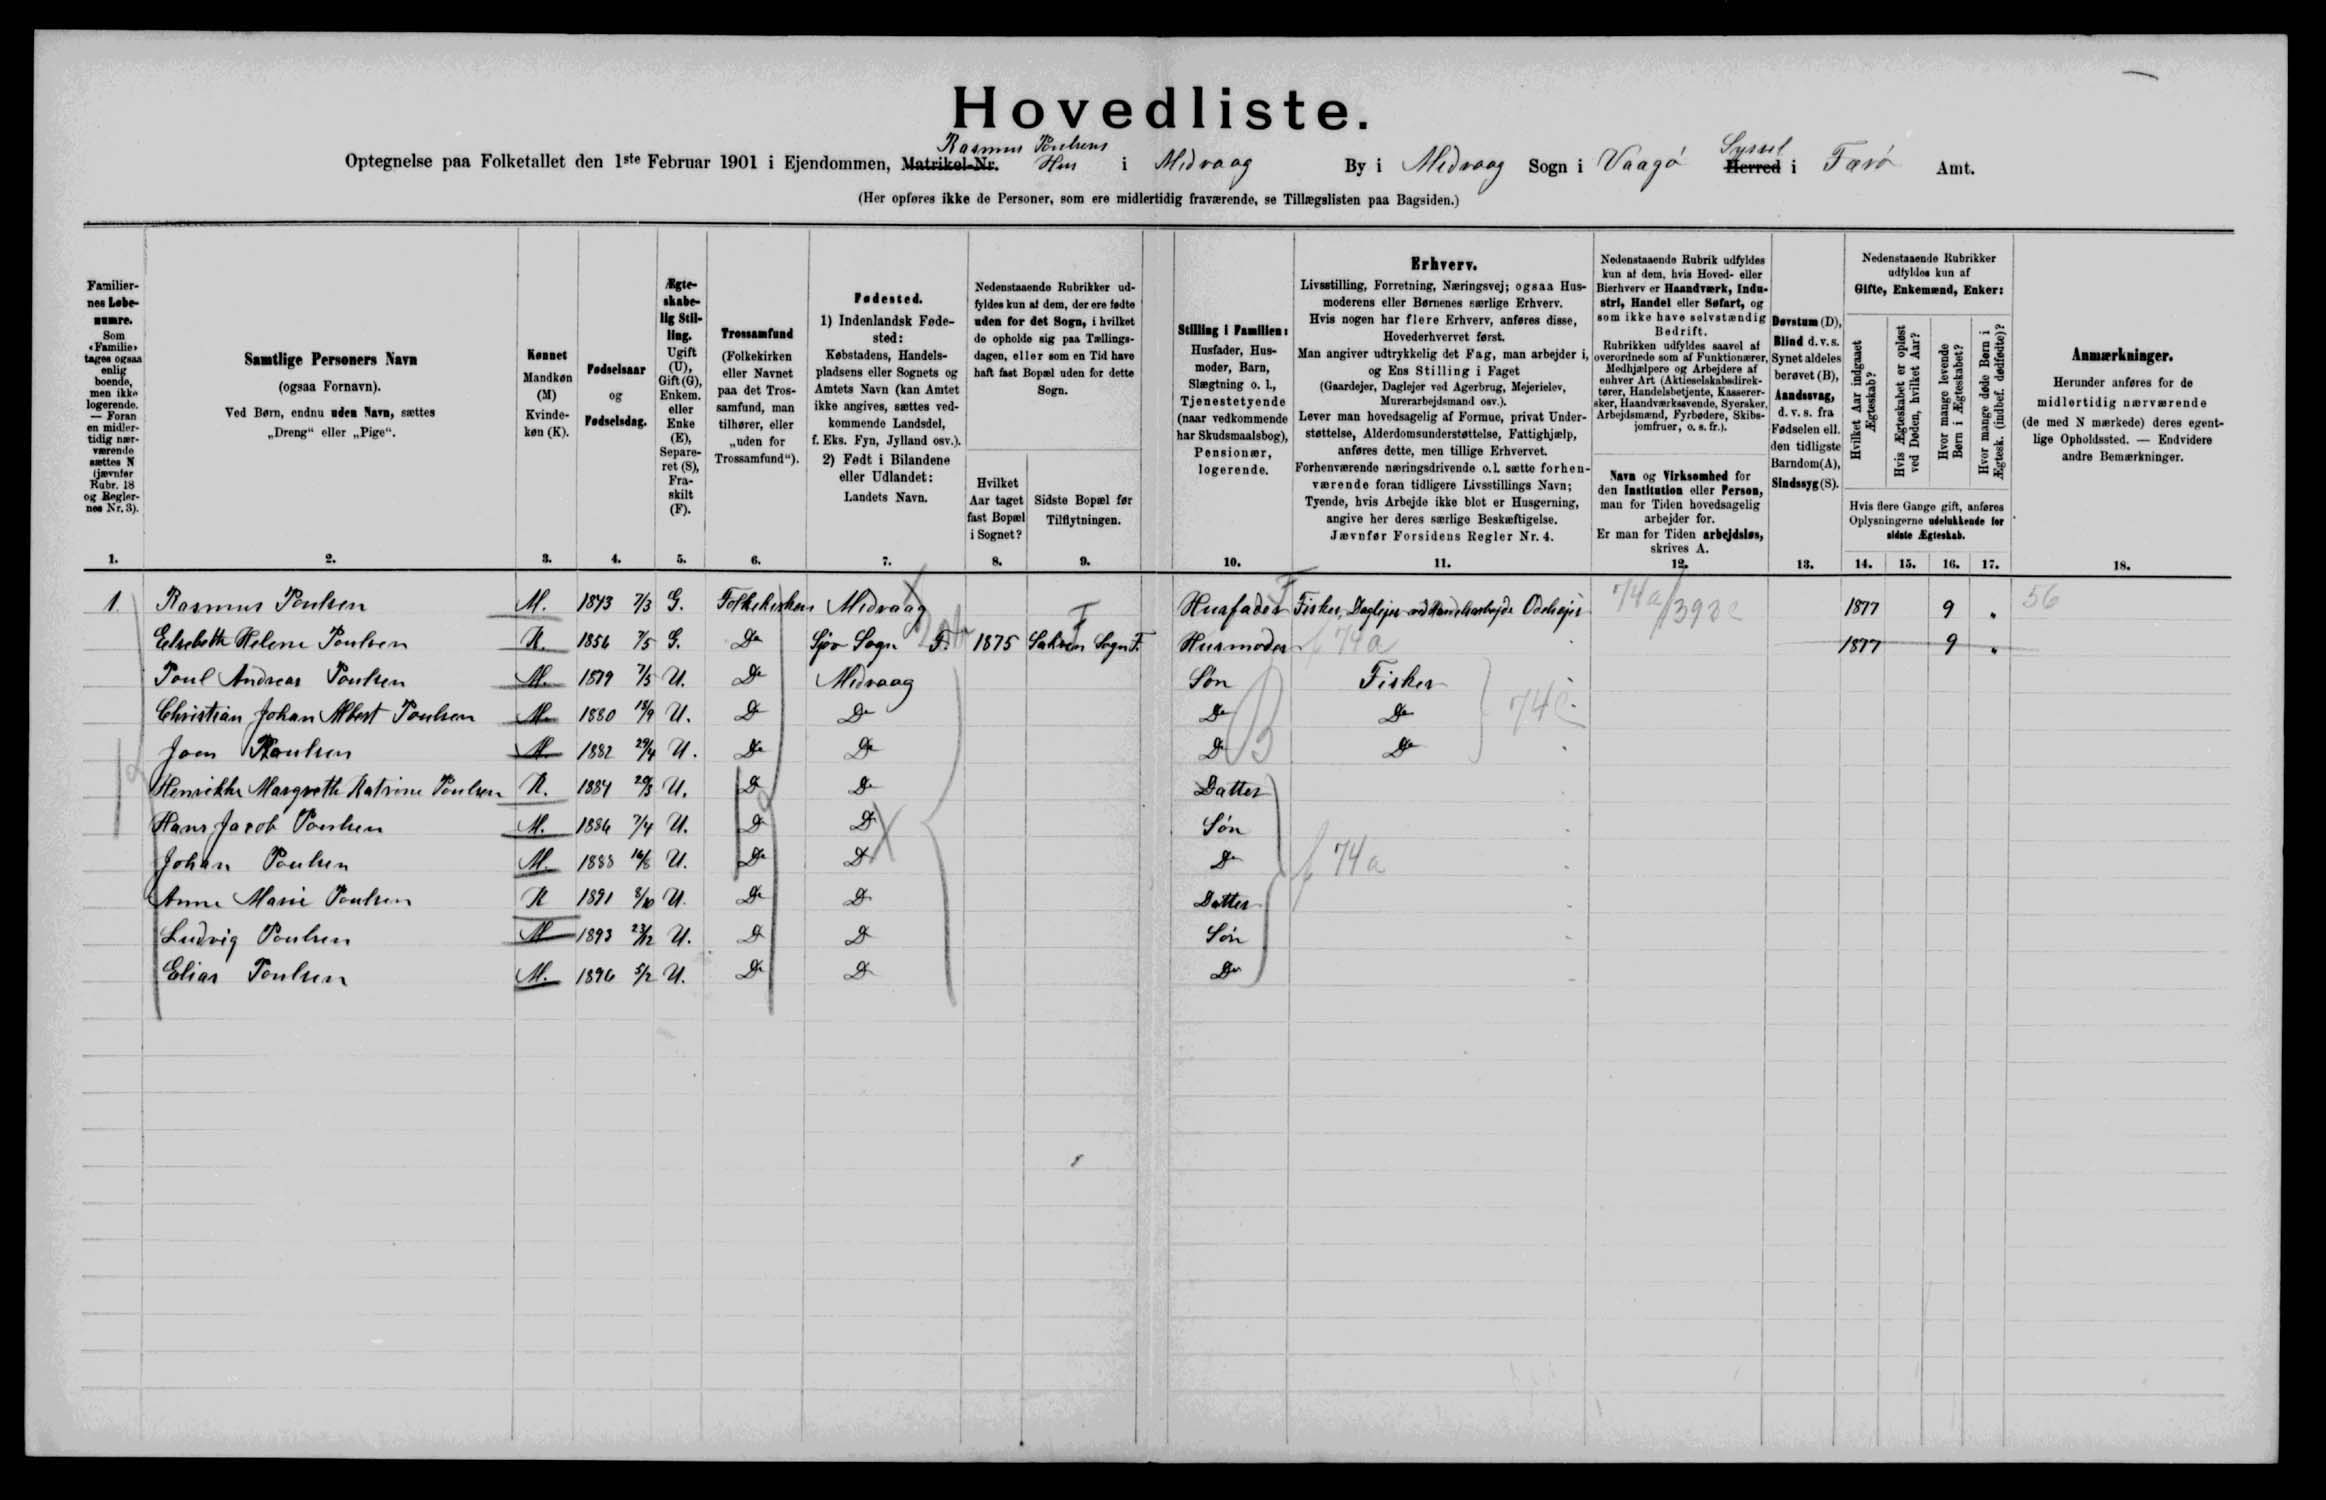 Hovedliste.
Rasmus Poulsens Syssel
Optegnelse paa Folketallet den 1ste Februar 1901 i Ejendommen, Matrikel-Nr. Hus i Midvaag By i Midvaag Sogn i Vaagø Herred i Færø Amt.
(Her opføres ikke de Personer, som ere midlertidig fraværende, se Tillægslisten paa Bagsiden.)
Familiernes Løbenumre.
Som «Familie» tages ogsaa enlig boende, men ikke logerende. — Foran en midlertidig nærværende sættes N (jævnfør Rubr. 18 og Reglernes Nr. 3).
1.
Samtlige Personers Navn
(ogsaa Fornavn).
Ved Børn, endnu uden Navn, sættes „Dreng“ eller „Pige“.
2.
Kønnet
Mandkøn (M)
Kvindekøn (K).
3.
Fødselsaar
og
Fødselsdag.
4.
Ægteskabelig Stilling.
Ugift (U), Gift (G), Enkem. eller Enke (E), Separeret (S), Fraskilt (F).
5.
Trossamfund
(Folkekirken eller Navnet paa det Trossamfund, man tilhører, eller „uden for Trossamfund“).
6.
Fødested.
1) Indenlandsk Fødested:
Købstadens, Handelspladsens eller Sognets og Amtets Navn (kan Amtet ikke angives, sættes vedkommende Landsdel, f. Eks. Fyn, Jylland osv.).
2) Født i Bilandene eller Udlandet:
Landets Navn.
7.
Nedenstaaende Rubrikker udfyldes kun af dem, der ere fødte uden for det Sogn, i hvilket de opholde sig paa Tællingsdagen, eller som en Tid have haft fast Bopæl uden for dette Sogn.
Hvilket Aar taget fast Bopæl i Sognet?
8.
Sidste Bopæl før Tilflytningen.
9.
Stilling i Familien:
Husfader, Husmoder, Barn, Slægtning o. l., Tjenestetyende (naar vedkommende har Skudsmaalsbog), Pensionær, logerende.
10.
Erhverv.
Livsstilling, Forretning, Næringsvej; ogsaa Husmoderens eller Børnenes særlige Erhverv.
Hvis nogen har flere Erhverv, anføres disse, Hovederhvervet først.
Man angiver udtrykkelig det Fag, man arbejder i, og Ens Stilling i Faget
(Gaardejer, Daglejer ved Agerbrug, Mejerielev, Murerarbejdsmand osv.).
Lever man hovedsagelig af Formue, privat Understøttelse, Alderdomsunderstøttelse, Fattighjælp, anføres dette, men tillige Erhvervet.
Forhenværende næringsdrivende o. l. sætte forhenværende foran tidligere Livsstillings Navn;
Tyende, hvis Arbejde ikke blot er Husgerning, angive her deres særlige Beskæftigelse.
Jævnfør Forsidens Regler Nr. 4.
11.
Nedenstaaende Rubrik udfyldes kun af dem, hvis Hoved- eller Bierhverv er Haandværk, Industri, Handel eller Søfart, og som ikke have selvstændig Bedrift.
Rubrikken udfyldes saavel af overordnede som af Funktionærer, Medhjælpere og Arbejdere af enhver Art (Aktieselskabsdirektører, Handelsbetjente, Kasserersker, Haandværkssvende, Syersker, Arbejdsmænd, Fyrbødere, Skibsjomfruer, o. s. fr.).
Navn og Virksomhed for den Institution eller Person, man for Tiden hovedsagelig arbejder for.
Er man for Tiden arbejdsløs, skrives A.
12.
Døvstum (D), Blind d. v. s. Synet aldeles berøvet (B), Aandssvag, d. v. s. fra Fødselen ell. den tidligste Barndom (A), Sindssyg (S).
13.
Nedenstaaende Rubrikker udfyldes kun af
Gifte, Enkemænd, Enker:
Hvilket Aar indgaaet Ægteskab?
Hvis Ægteskabet er opløst ved Døden, hvilket Aar?
Hvor mange levende Børn i Ægteskabet?
Hvor mange døde Børn i Ægtesk. (indbef. dødfødte)?
Hvis flere Gange gift, anføres Oplysningerne udelukkende for sidste Ægteskab.
14. 15. 16. 17.
Anmærkninger.
Herunder anføres for de midlertidig nærværende (de med N mærkede) deres egentlige Opholdssted. — Endvidere andre Bemærkninger.
18.
1 Rasmus Poulsen M. 1843 7/3 G. Folkekirken Midvaag Husfader Fisker, Daglejer ved Odelsejer 74a 393c 1877 9 „ 56
Elsebeth Helene Poulsen K. 1856 7/5 G. Do Sjov Sogn F. 1875 Sogn F. Husmoder f 74a 1877 9 „
Poul Andreas Poulsen M. 1879 7/5 U. Do Midvaag Søn Fisker
Christian Johan Albert Poulsen M. 1880 18/9 U. Do Do Do Do 74c
Joen Poulsen M. 1882 29/4 U. Do Do Do Do
Henrikke Margreth Katrine Poulsen K. 1884 20/3 U. Do Do Datter
Hans Jacob Poulsen M. 1886 7/4 U. Do Do Søn
Johan Poulsen M. 1888 16/8 U. Do Do Do f 74a
Anne Marie Poulsen K 1891 8/10 U. Do Do Datter
Ludvig Poulsen M 1893 23/12 U. Do Do Søn
Elias Poulsen M. 1896 5/2 U. Do Do Do